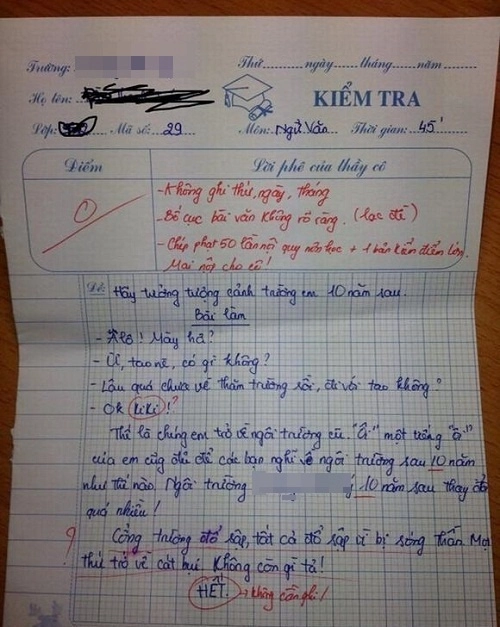 Trường:
Thứ.......... ngày.......... tháng.......... năm..........
Họ tên:
KIỂM TRA
Lớp: Mã số: 29
Môn: Ngữ Văn Thời gian: 45'
Điểm
Lời phê của thầy cô
0
- Không ghi thứ, ngày, tháng
- Bố cục bài văn không rõ ràng. (lạc đề)
- Chép phạt 50 lần nội quy môn học + 1 bản kiểm điểm lớn.
Mai nộp cho cô!
Đề: Hãy tưởng tượng cảnh trường em 10 năm sau.
Bài làm
- Alô! Mày hả?
- Ừ, tao nè, có gì không?
- Lâu quá chưa về thăm trường rồi, đi với tao không?
- Ok kiki!?
Thế là chúng em trở về ngôi trường cũ. "Ôi" một tiếng "ôi"
của em cũng đủ để các bạn nghĩ về ngôi trường sau 10 năm
như thế nào. Ngôi trường 10 năm sau thay đổi
quá nhiều!
? Cổng trường đổ sập, tất cả đổ sập vì bị sóng thần. Mọi
thứ trở về cát bụi. Không còn gì tả!
HẾT. → không cần ghi!